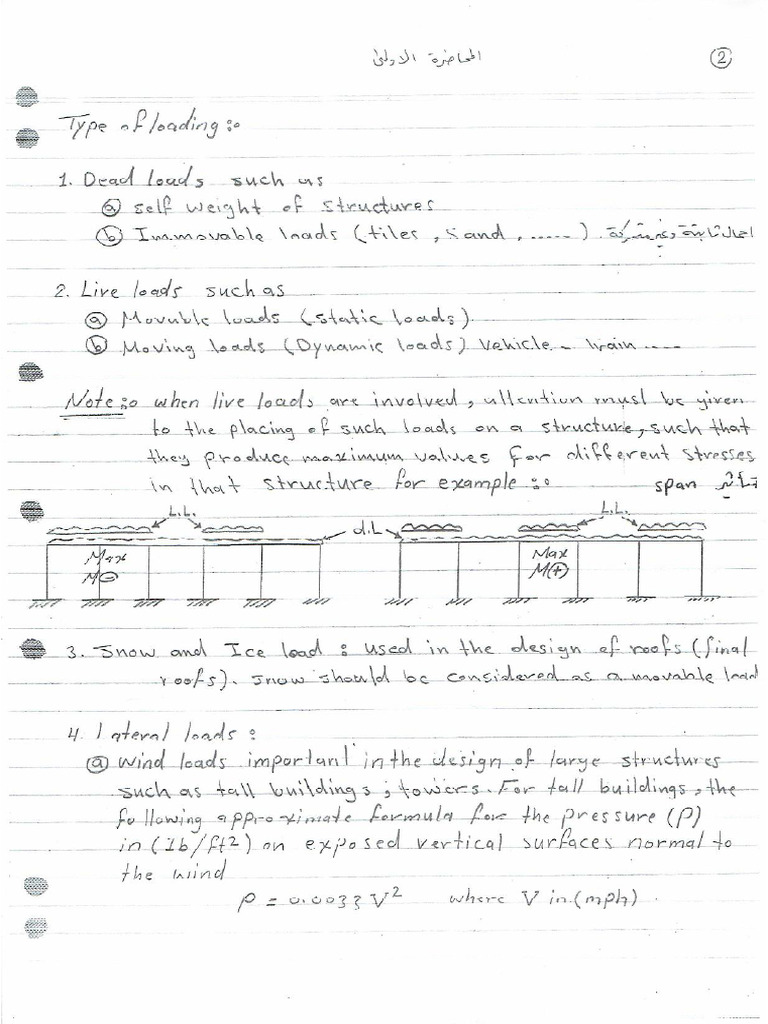 المحاضرة الاولى
2
Type of loading:
1. Dead loads such as
a self weight of structures
b Immovable loads (tiles, Sand, ......). احمال ثابتة وغير متحركة
2. Live loads such as
a Movable loads (static loads)
b Moving loads (Dynamic loads) vehicle - train ....
Note: when live loads are involved, attention must be given
to the placing of such loads on a structure, such that
they produce maximum values for different stresses
in that structure for example: span
L.L. d.L L.L.
Max Max
M(-) M(+)
3. Snow and Ice load: used in the design of roofs (final
roofs). Snow should be considered as a movable load
4. lateral loads:
a Wind loads important in the design of large structures
such as tall buildings, towers. For tall buildings, the
following approximate formula for the pressure (P)
in (Ib/ft2) on exposed vertical surfaces normal to
the wind
P = 0.0033 V² where V in (mph).